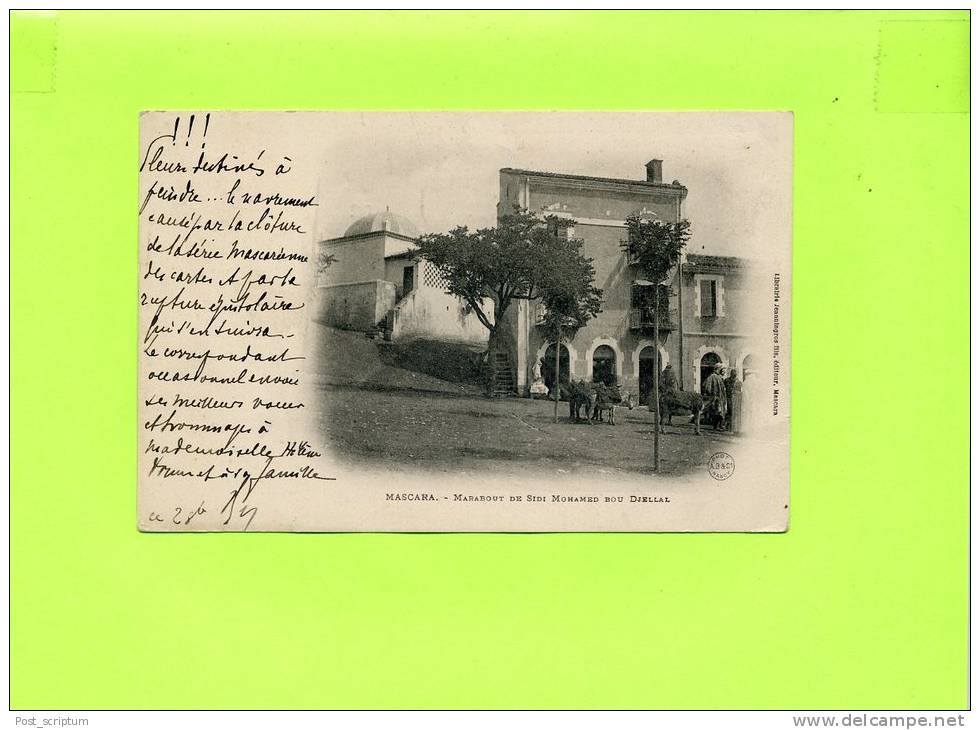 !!!
Pleurs destinés à
peindre... le navrement
causé par la clôture
de la série Mascaréenne
des cartes et par la
rupture épistolaire
qui s'en suivra -
Le correspondant
occasionnel envoie
ses meilleurs vœux
et hommages à
Mademoiselle
et à sa famille
ce 28
MASCARA. - MARABOUT DE SIDI MOHAMED BOU DJELLAL
Librairie Jeanningros fils, éditeur, Mascara
A.B & Cie
NANCY
Post_scriptum
www.delcampe.net